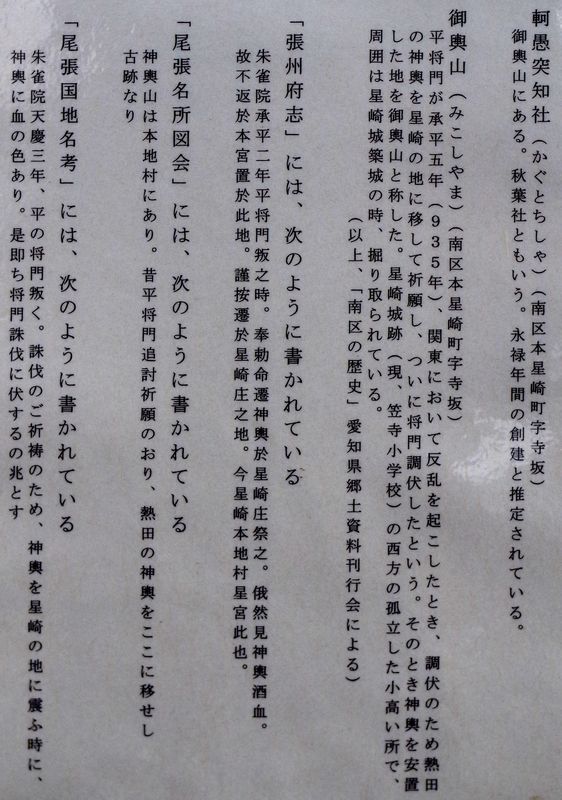 軻愚突知社（かぐとちしゃ）（南区本星崎町字寺坂）
御輿山にある。秋葉社ともいう。永禄年間の創建と推定されている。
御輿山（みこしやま）（南区本星崎町字寺坂）
平将門が承平五年（９３５年）、関東において反乱を起こしたとき、調伏のため熱田
の神輿を星崎の地に移して祈願し、ついに将門調伏したという。そのとき神輿を安置
した地を御輿山と称した。星崎城跡（現、笠寺小学校）の西方の孤立した小高い所で、
周囲は星崎城築城の時、掘り取られている。
（以上、「南区の歴史」愛知県郷土資料刊行会による）
「張州府志」には、次のように書かれている
朱雀院承平二年平将門叛之時。奉勅命遷神輿於星崎庄祭之。俄然見神輿洒血。
故不返於本宮置於此地。謹按遷於星崎庄之地。今星崎本地村星宮此也。
「尾張名所図会」には、次のように書かれている
神輿山は本地村にあり。昔平将門追討祈願のおり、熱田の神輿をここに移せし
古跡なり
「尾張国地名考」には、次のように書かれている
朱雀院天慶三年、平の将門叛く。誅伐のご祈祷のため、神輿を星崎の地に震ふ時に、
神輿に血の色あり。是即ち将門誅伐に伏するの兆とす